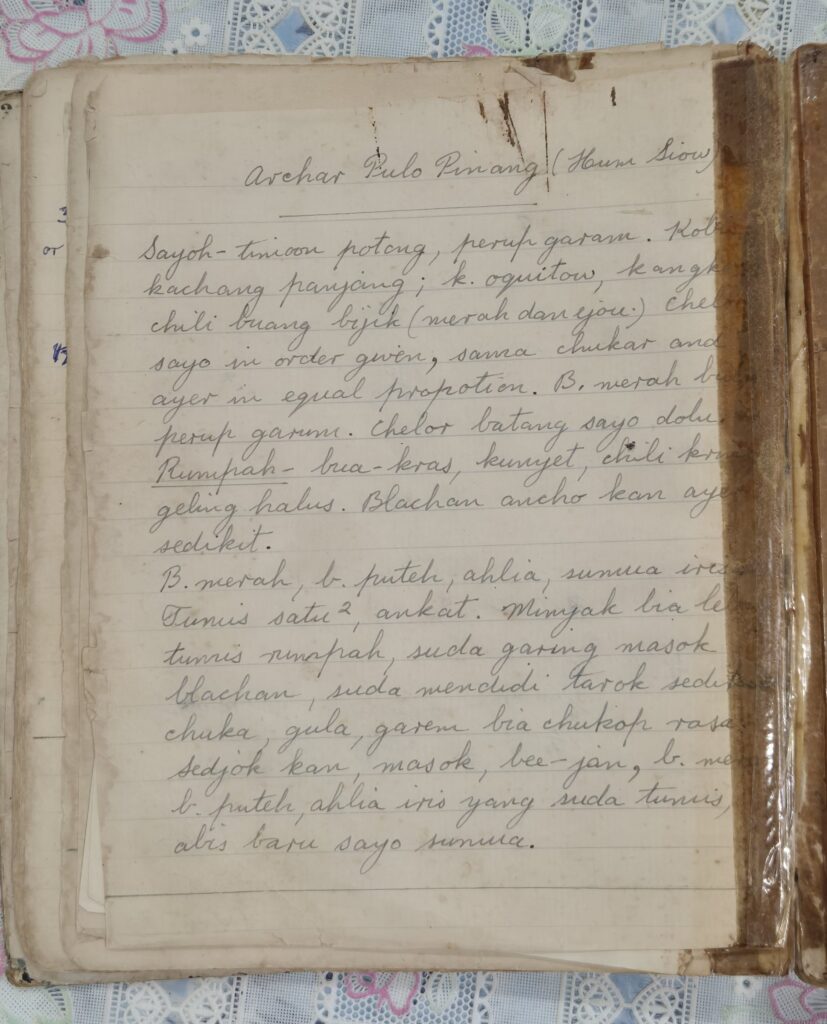 Archar Pulo Pinang (Hum Siow)
Sayoh - timoon potong, perup garam. Kob
kachang panjang; k. oquitow, kangk
chili buang bijik (merah dan ejou.) Chelo
sayo in order given, sama chukar and
ayer in equal propotion. B. merah bu
perup garum. Chelor batang sayo dolu.
Rumpah - bua-kras, kunyet, chili krin
geling halus. Blachan ancho kan ayer
sedikit.
B. merah, b. puteh, ahlia, sumua iris
Tumis satu 2, ankat. Minyak bia le
tumis rumpah, suda garing masok
blachan, suda mendidi tarok sedikit
chuka, gula, garem bia chukop rasa.
Sedjok kan, masok, bee-jan, b. mera
b. puteh, ahlia iris yang suda tumis,
abis baru sayo sumua.
or